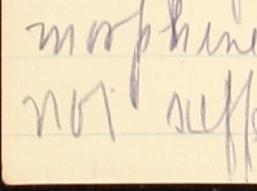 morphine
not suff